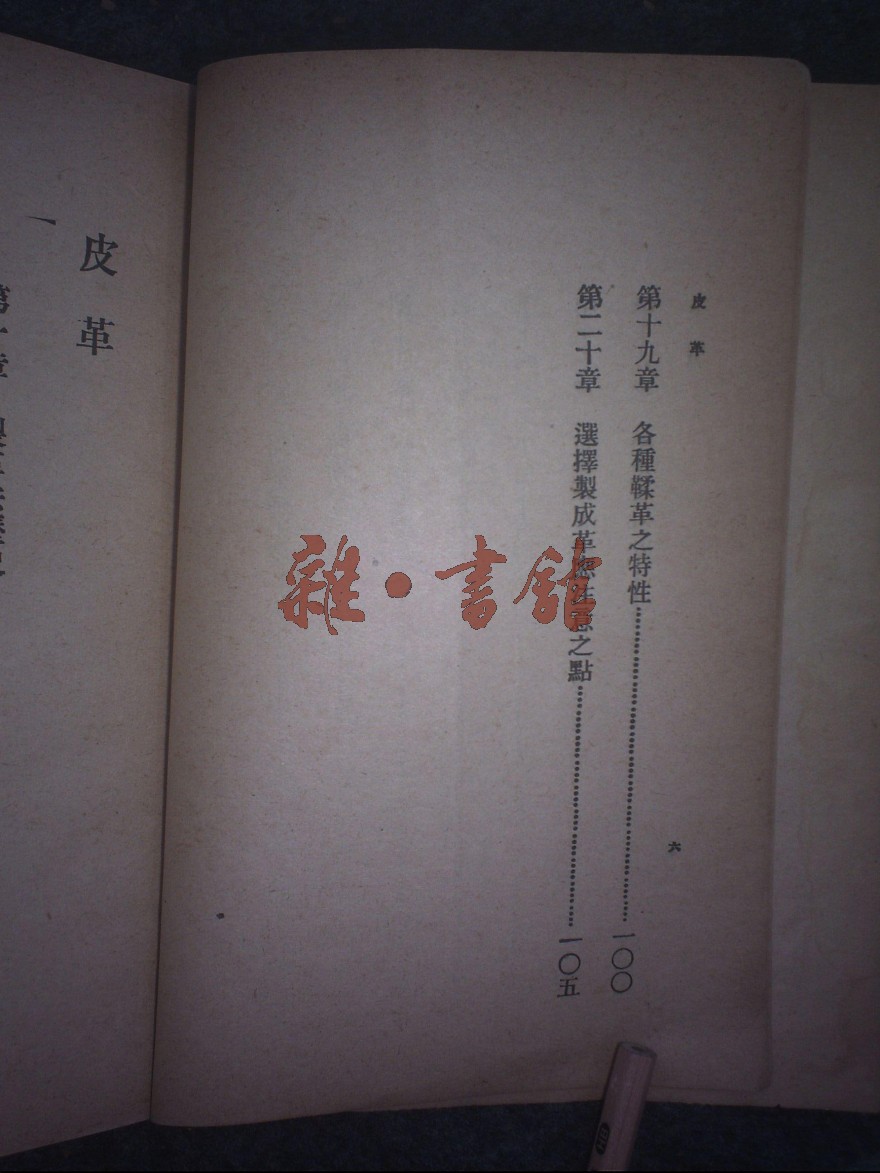 皮革
六
第十九章 各種鞣革之特性……一〇〇
第二十章 選擇製成革應注意之點……一〇五
皮革
第一章
雜·書館